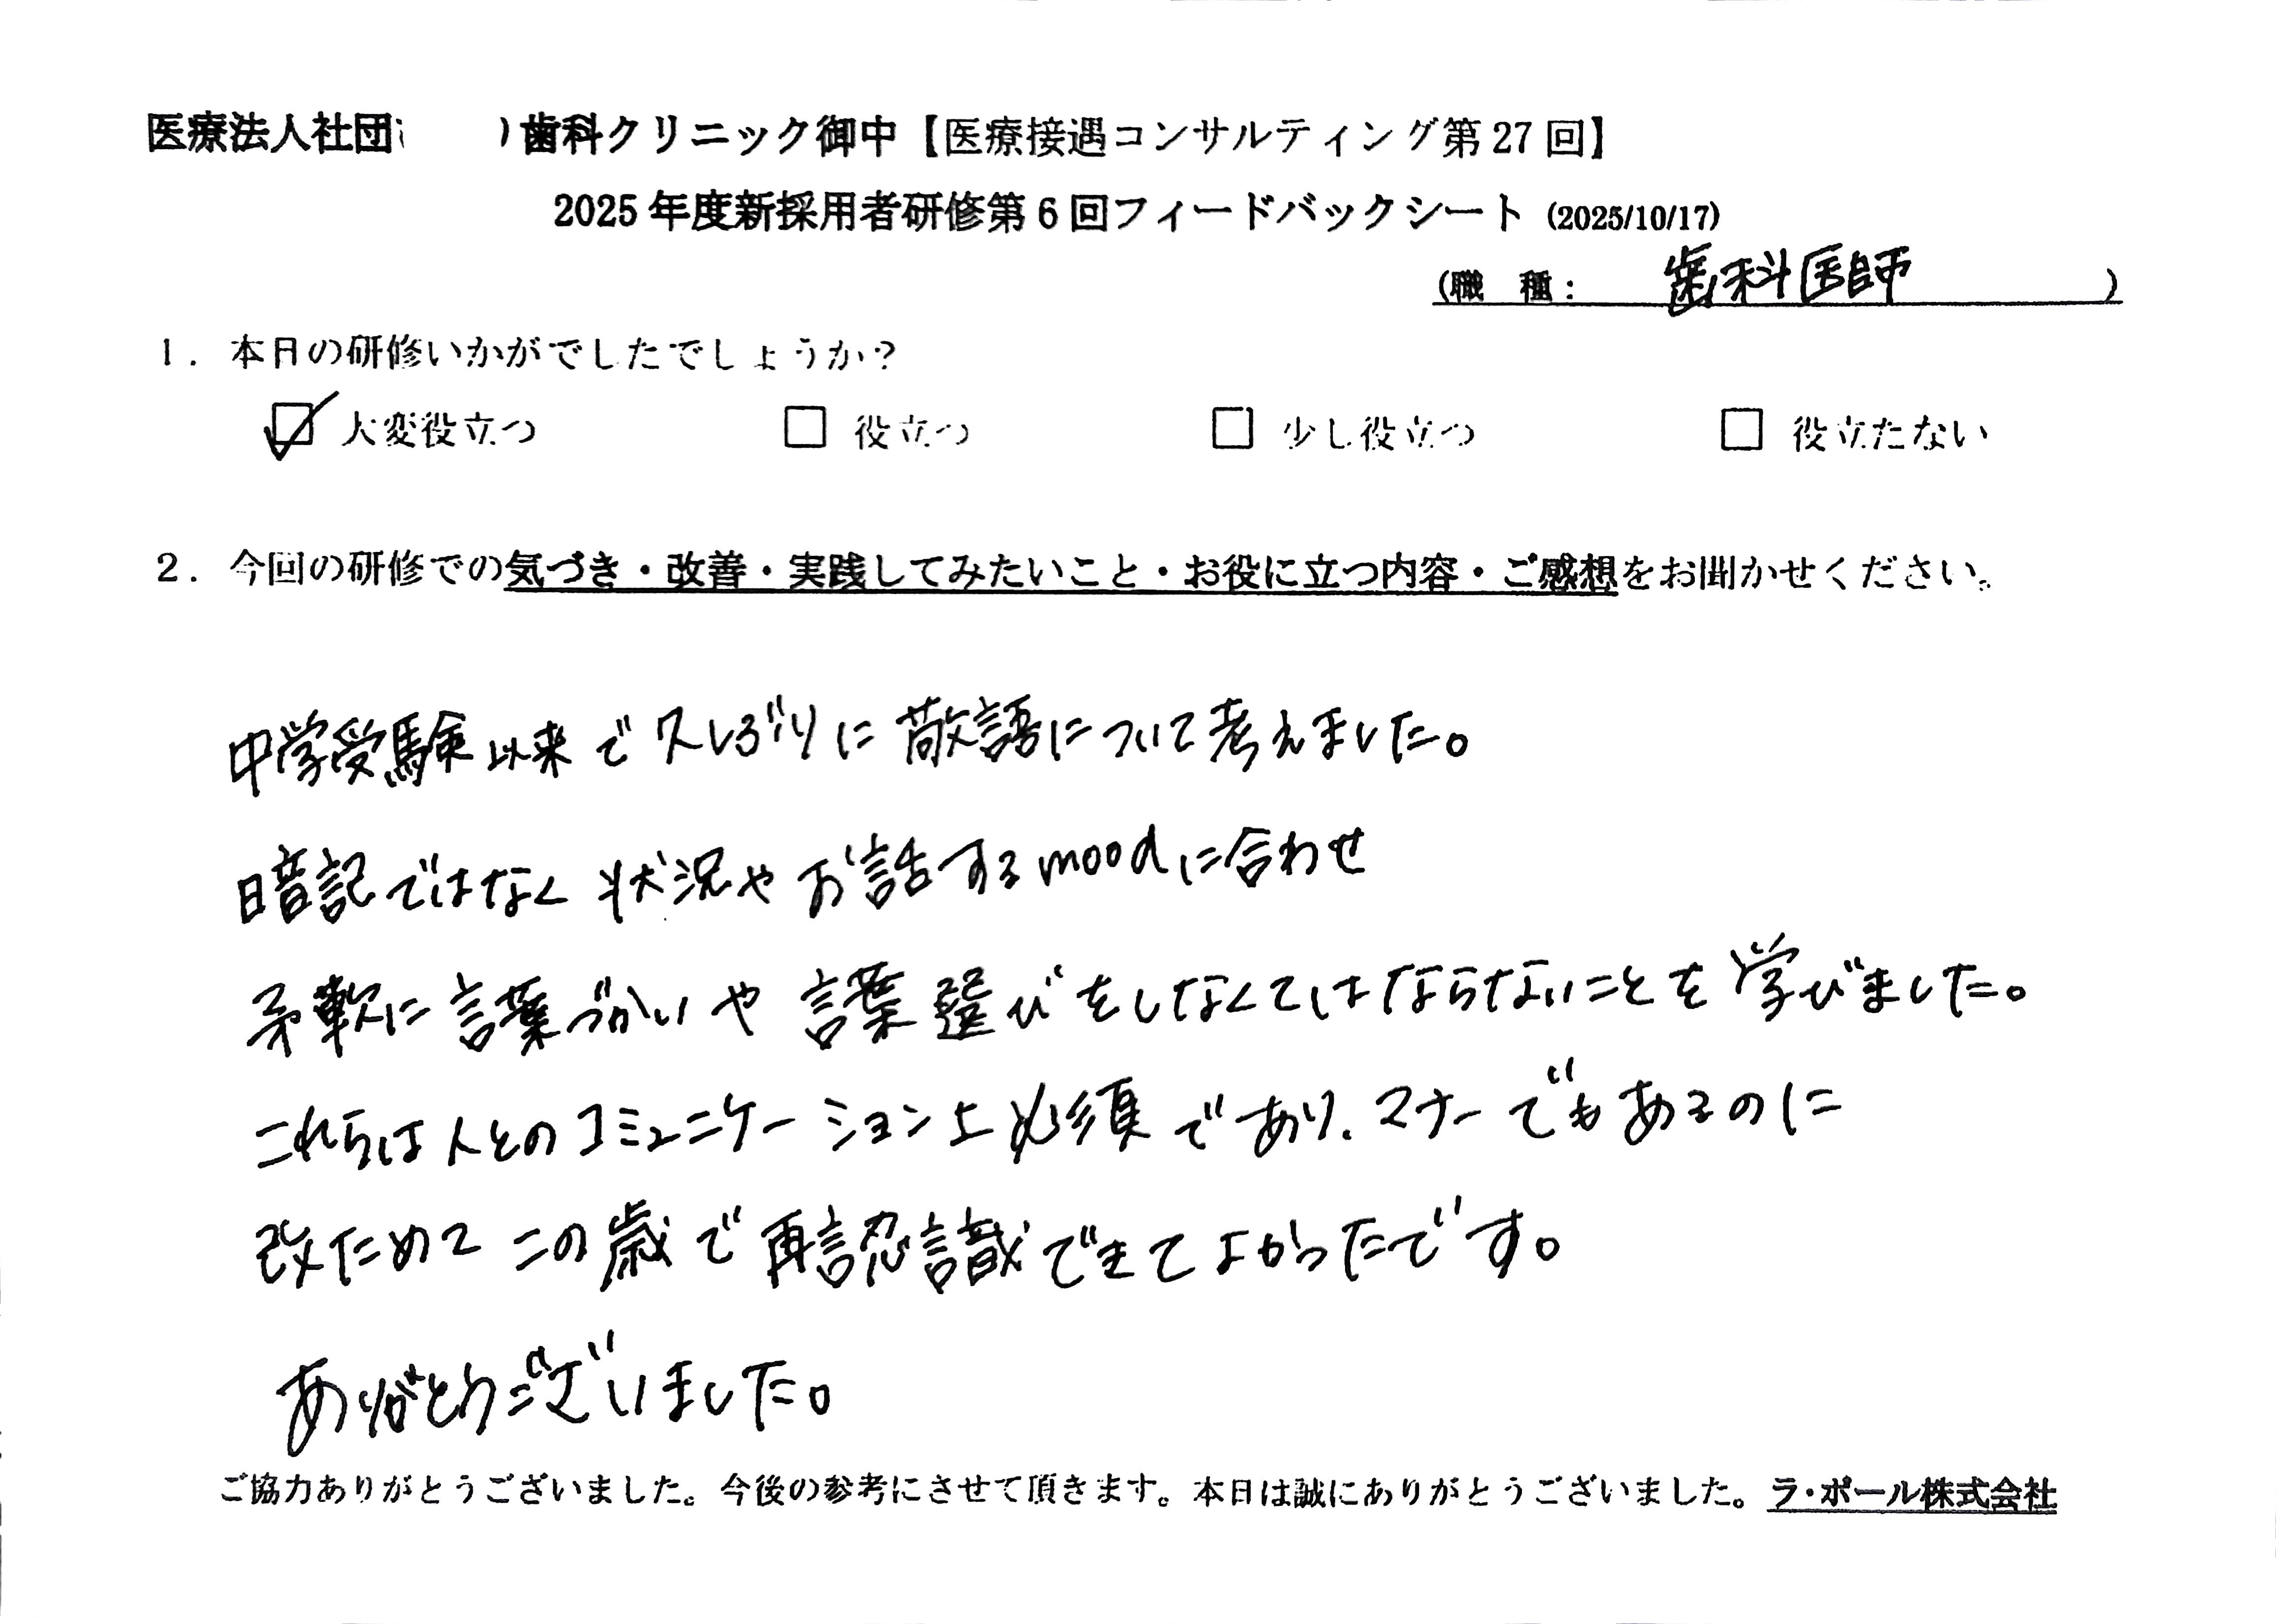 医療法人社団 歯科クリニック御中【医療接遇コンサルティング第27回】
2025年度新採用者研修第6回フィードバックシート (2025/10/17)
(職 種: 歯科医師 )
1. 本日の研修いかがでしたでしょうか?
☑ 大変役立つ □ 役立つ □ 少し役立つ □ 役立たない
2. 今回の研修での気づき・改善・実践してみたいこと・お役に立つ内容・ご感想をお聞かせください。
中学受験以来で久しぶりに敬語について考えました。
暗記ではなく状況やお話するmoodに合わせ
柔軟に言葉づかいや言葉選びをしなくてはならないことを学びました。
これらは人とのコミュニケーション上必須であり、マナーでもあるのに
改ためてこの歳で再認識できてよかったです。
ありがとうございました。
ご協力ありがとうございました。今後の参考にさせて頂きます。本日は誠にありがとうございました。ラ・ポール株式会社